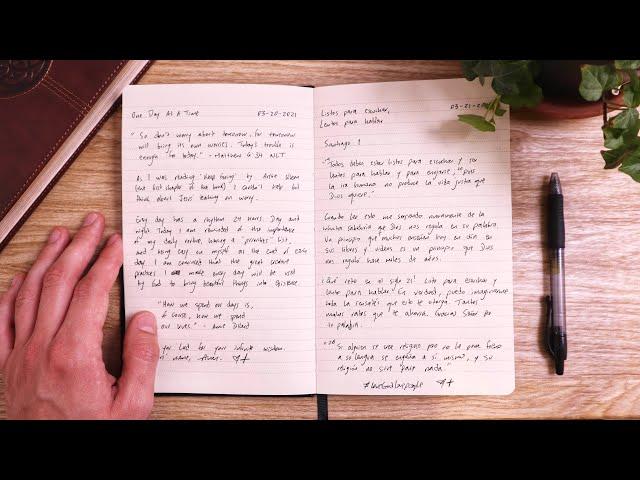 One Day At A Time 03-20-2021
"So don't worry about tomorrow, for tomorrow
will bring its own worries. Today's trouble is
enough for today." - Matthew 6:34 NLT
As I was reading "Keep Going" by Austin Kleon
(the first chapter of the book) I couldn't help but
think about Jesus teaching on worry.
Every day has a rhythm 24 hours Day and
night. Today I am reminded of the importance
of my daily routine, having a "priorities" list,
and being easy on myself at the end of each
day. I am convinced that the great creative
practices I made every day will be used
by God to bring beautiful things into existence
"How we spend our days is,
of course, how we spend
our lives." - Annie Dillard
you Lord for your infinite wisdom.
name, Amen.
Listos para escuchar, 03-21-2021
Lentos para hablar
Santiago 1
"Todos deben estar listos para escuchar y ser
lentos para hablar y para enojarse, 20 pues
la ira humana no produce la vida justa que
Dios quiere."
Cuando leo esto me sorprendo nuevamente de la
infinita sabiduría que Dios nos regala en su palabra.
Un principio que muchos enseñan hoy en día en
sus libros y videos es un principio que Dios
nos regaló hace miles de años.
¡Qué reto en el siglo 21! Listo para escuchar y
lento para hablar. En verdad, puedo imaginarme
toda la sensatez que esto te otorga. Tantos
malos ratos que te ahorra. Gracias Señor por
tu palabra.
26 Si alguien se cree religioso pero no le pone freno
a su lengua se engaña a sí mismo, y su
religión no sirve para nada."
#LoveGodLovePeople